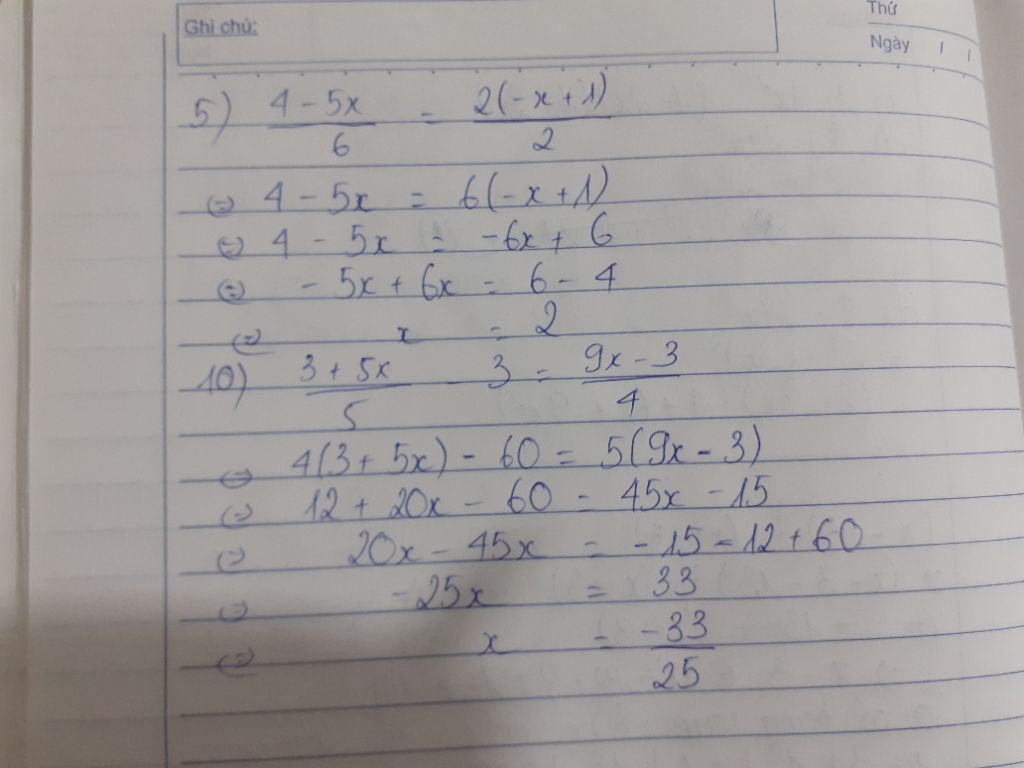 Ghi chú:
Thứ
Ngày / /
5) (4 - 5x)/6 = 2(-x + 1)/2
⇔ 4 - 5x = 6(-x + 1)
⇔ 4 - 5x = -6x + 6
⇔ - 5x + 6x = 6 - 4
⇔ x = 2
10) (3 + 5x)/5 - 3 = (9x - 3)/4
⇔ 4(3 + 5x) - 60 = 5(9x - 3)
⇔ 12 + 20x - 60 = 45x - 15
⇔ 20x - 45x = - 15 - 12 + 60
⇔ -25x = 33
⇔ x = -33/25